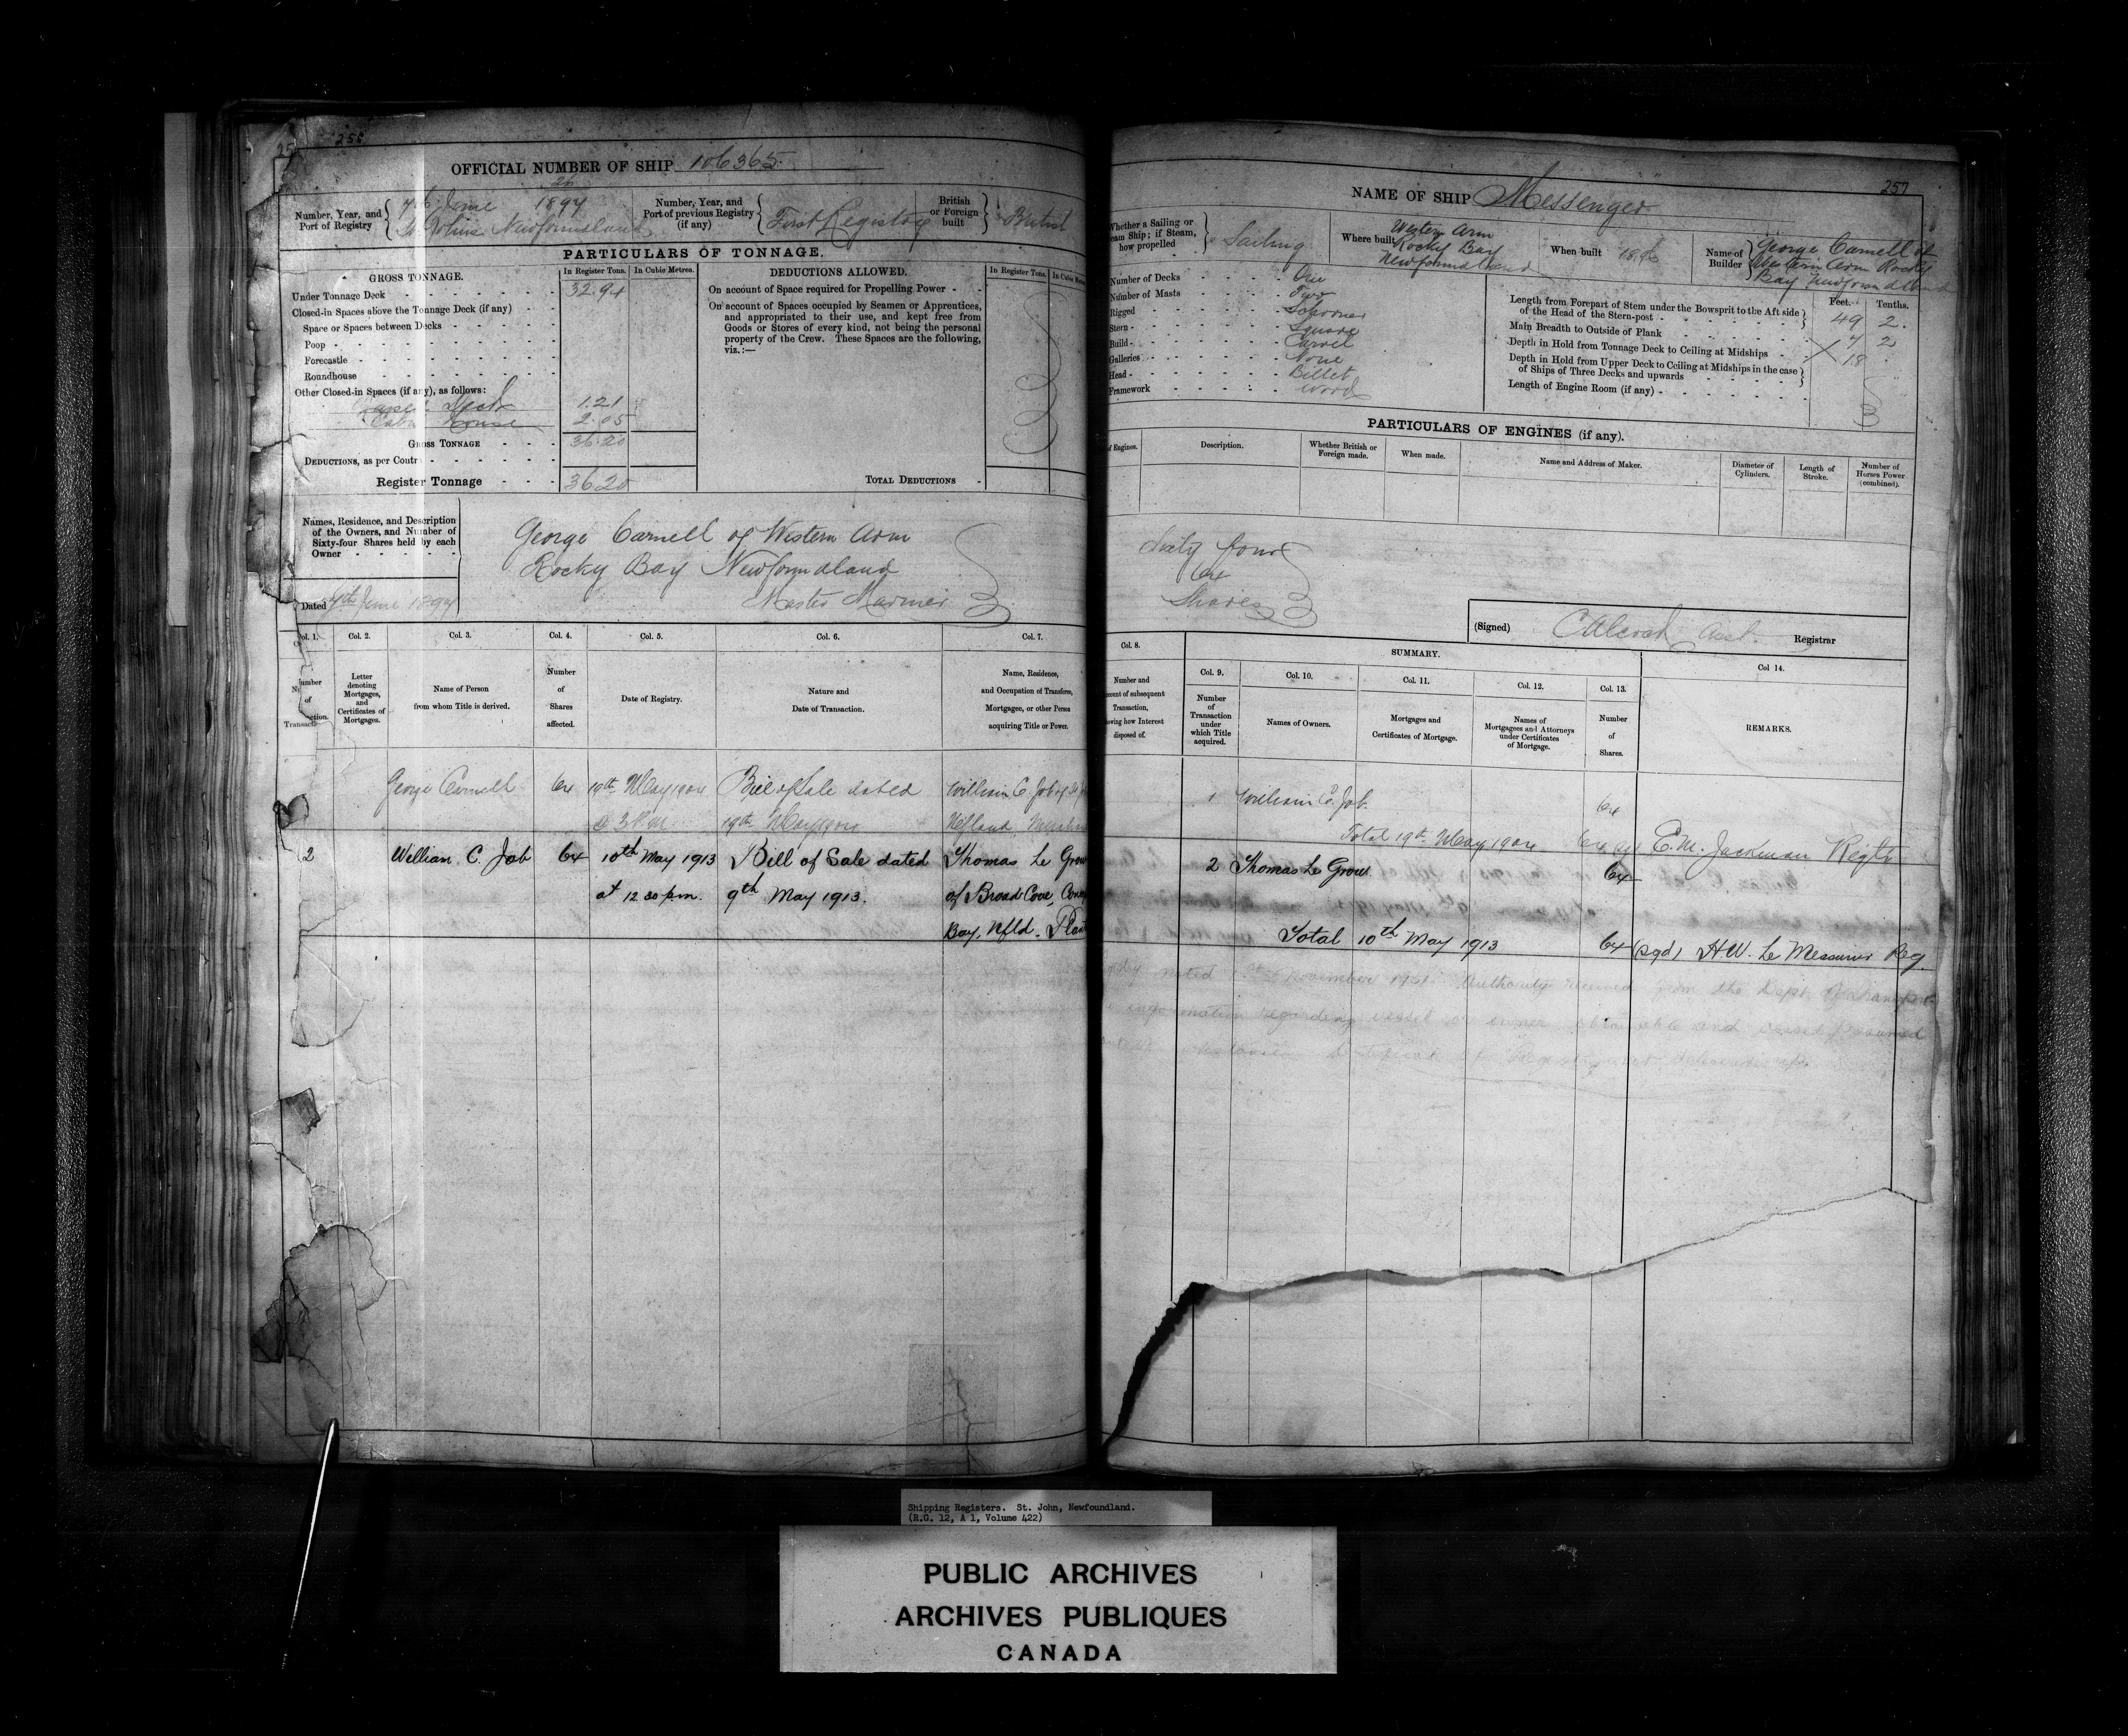 256
OFFICIAL NUMBER OF SHIP 106365
Number, Year, and Port of Registry
26
7th June 1897
St Johns Newfoundland
Number, Year, and Port of previous Registry (if any)
First Registry
British or Foreign built
British
PARTICULARS OF TONNAGE.
GROSS TONNAGE.
In Register Tons.
In Cubic Metres.
DEDUCTIONS ALLOWED.
In Register Tons.
Under Tonnage Deck 32.94
Closed-in Spaces above the Tonnage Deck (if any)
Space or Spaces between Decks
Poop
Forecastle
Roundhouse
Other Closed-in Spaces (if any), as follows:
Deck 1.21
Cabin House 2.05
GROSS TONNAGE 36.20
DEDUCTIONS, as per Contr
Register Tonnage 36.20
On account of Space required for Propelling Power
On account of Spaces occupied by Seamen or Apprentices,
and appropriated to their use, and kept free from
Goods or Stores of every kind, not being the personal
property of the Crew. These Spaces are the following,
viz.:—
TOTAL DEDUCTIONS
Names, Residence, and Description
of the Owners, and Number of
Sixty-four Shares held by each
Owner
Dated 7th June 1897
George Carnell of Western Arm
Rocky Bay Newfoundland
Master Mariner
Col. 1.
Col. 2.
Col. 3.
Col. 4.
Col. 5.
Col. 6.
Col. 7.
Number of Transaction.
Letter denoting Mortgages, and Certificates of Mortgages.
Name of Person from whom Title is derived.
Number of Shares affected.
Date of Registry.
Nature and Date of Transaction.
Name, Residence, and Occupation of Transferee, Mortgagee, or other Person acquiring Title or Power.
George Carnell 64 19th May 1904 Bill of Sale dated William C. Job of St
@ 3 P.M. 19th May 1904 Nfland,
2 William C. Job 64 10th May 1913 Bill of Sale dated Thomas Le Grow
at 12.30 p.m. 9th May 1913. of Broad Cove, Conc
Bay, Nfld. Plant
257
NAME OF SHIP Messenger
Whether a Sailing or Steam Ship; if Steam, how propelled
Sailing
Where built
Western Arm
Rocky Bay
Newfoundland
When built
Name of Builder
George Carnell of
Western Arm Rocky
Bay Newfoundland
Number of Decks One
Number of Masts Two
Rigged Schooner
Stern Square
Build Carvel
Galleries None
Head Billet
Framework Wood
Feet. Tenths.
Length from Forepart of Stem under the Bowsprit to the Aft side
of the Head of the Stern-post 49 2
Main Breadth to Outside of Plank
Depth in Hold from Tonnage Deck to Ceiling at Midships
Depth in Hold from Upper Deck to Ceiling at Midships in the case
of Ships of Three Decks and upwards
Length of Engine Room (if any)
PARTICULARS OF ENGINES (if any).
of Engines.
Description.
Whether British or Foreign made.
When made.
Name and Address of Maker.
Diameter of Cylinders.
Length of Stroke.
Number of Horses Power (combined).
Sixty four
64
Shares
(Signed) Asst. Registrar
Col. 8.
SUMMARY.
Col 14.
Col. 9.
Col. 10.
Col. 11.
Col. 12.
Col. 13.
Number of Transaction under which Title acquired.
Names of Owners.
Mortgages and Certificates of Mortgage.
Names of Mortgagees and Attorneys under Certificates of Mortgage.
Number of Shares.
REMARKS.
1 William C. Job 64
Total 19th May 1904 64 E. M. Jackman Regtr
2 Thomas Le Grow 64
Total 10th May 1913 64 (sgd) H.W. Le Messurier Reg.
noted November 1951. Authority received from the Dept. of Transport.
information regarding vessel or owner obtainable and vessel presumed
Certificate of Registry not delivered up.
Shipping Registers. St. John, Newfoundland.
(R.G. 12, A 1, Volume 422)
PUBLIC ARCHIVES
ARCHIVES PUBLIQUES
CANADA